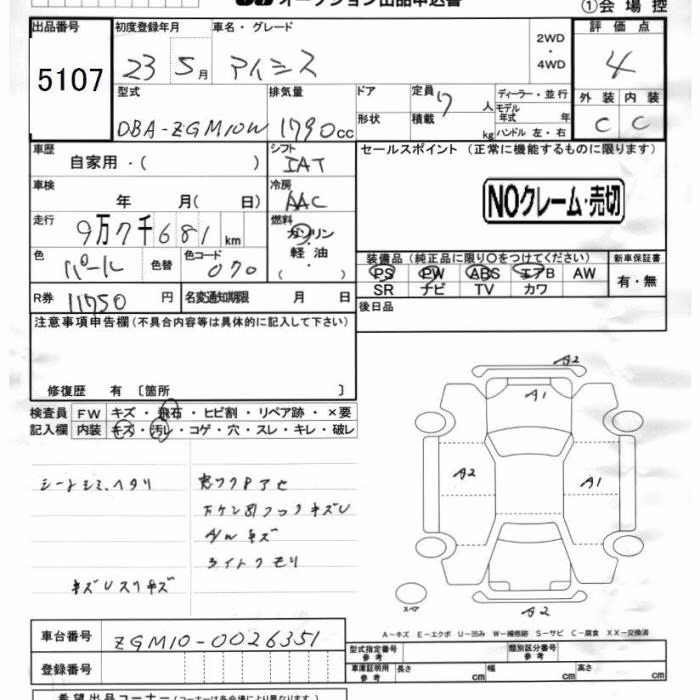 オークション出品申込書
①会場控
出品番号
5107
初度登録年月
23 5月
車名・グレード
アイシス
2WD
・
4WD
評価点
4
型式
DBA-ZGM10W
排気量
1790cc
ドア
形状
定員 7 人
積載 kg
ディーラー・並行
モデル年式 年
ハンドル 左・右
外装 内装
C C
車歴
自家用・( )
シフト
IAT
セールスポイント (正常に機能するものに限ります)
車検
年 月( 日)
冷房
AAC
NOクレーム・売切
走行
9万7千681km
燃料
ガソリン
・
軽油
( )
色
パール
色替
色コード
070
装備品 (純正品に限り○をつけてください)
PS PW ABS エアB AW
SR ナビ TV カワ
新車保証書
有・無
R券 11750 円
名変通知期限 月 日
後日品
注意事項申告欄 (不具合内容等は具体的に記入して下さい)
修復歴 有 〔箇所 〕
検査員
記入欄
FW キズ・飛石・ヒビ割・リペア跡・×要
内装 キズ・汚レ・コゲ・穴・スレ・キレ・破レ
シートシミ、ヘタリ
キズUスリキズ
A/Wキズ
ライトクモリ
A2
A1
A2
A1
A2
スペア
A-キズ E-エクボ U-凹み W-補修跡 S-サビ C-腐食 XX-交換済
車台番号 ZGM10-0026351
登録番号
型式指定番号
参考
類別区分番号
参考
車庫証明用
参考
長さ cm 幅 cm 高さ cm
希望出品コーナー(コーナーは各会場により異なります)